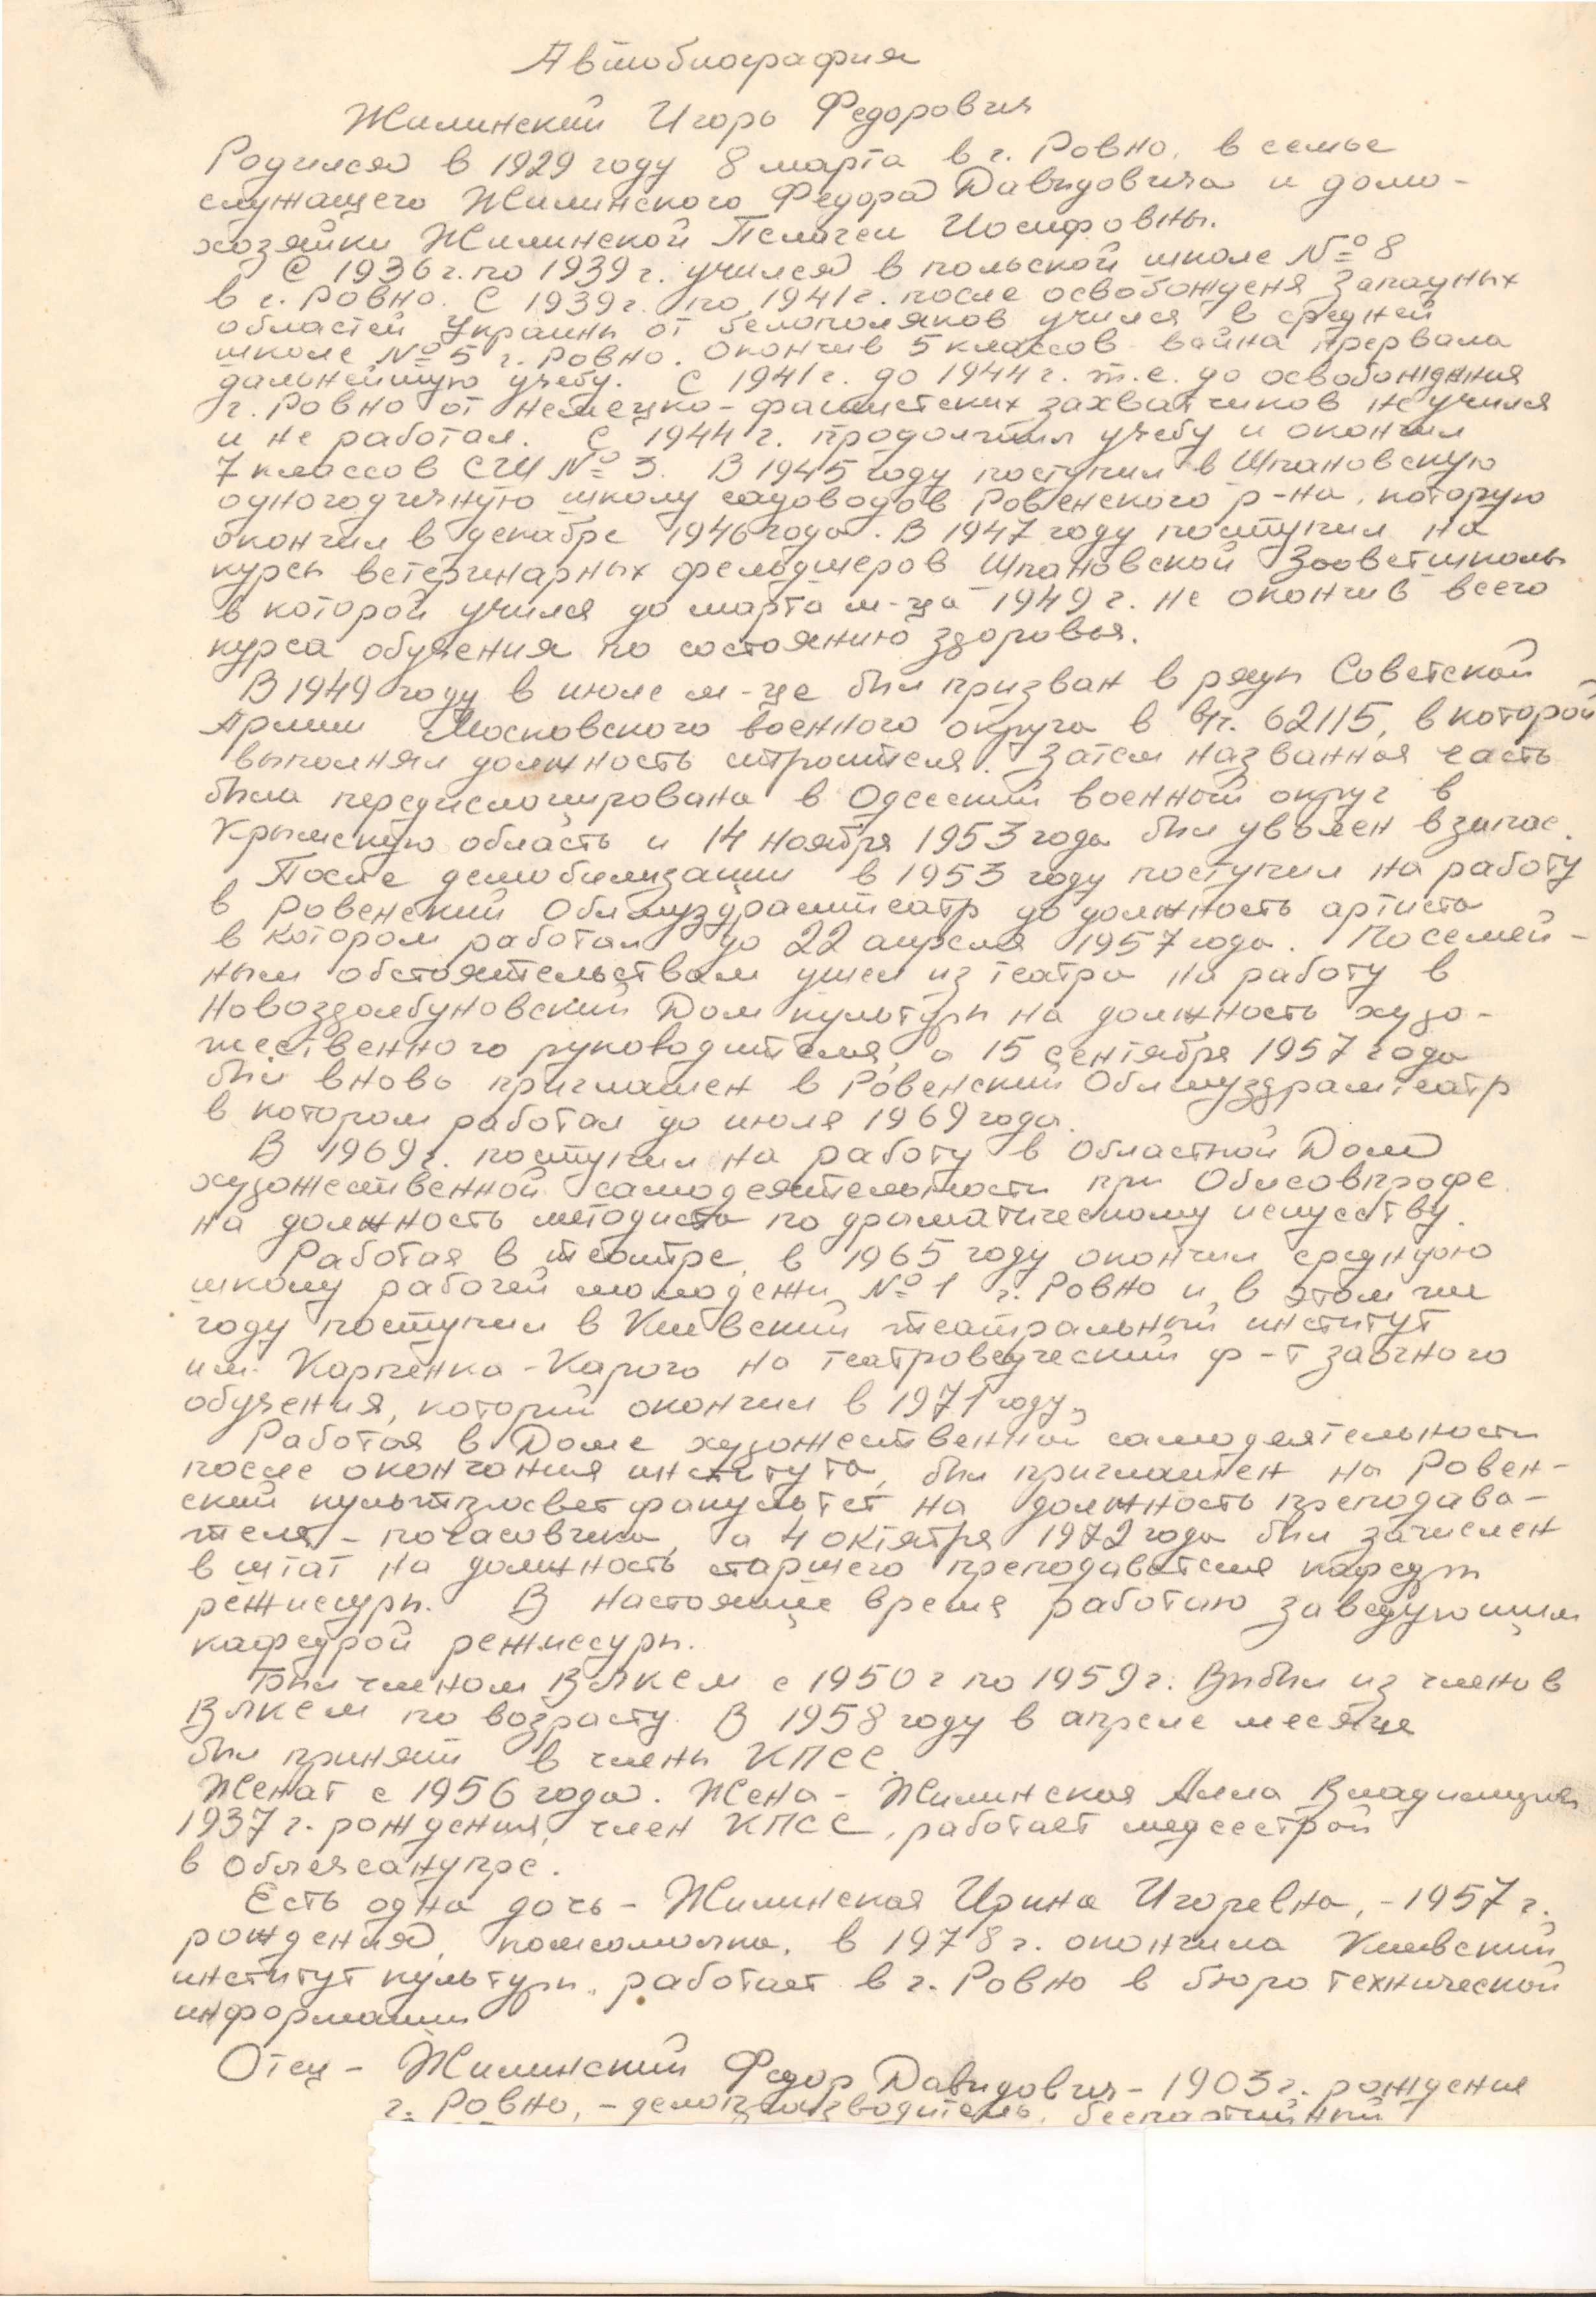 Автобиография
Жилинский Игорь Федорович
Родился в 1929 году 8 марта в г. Ровно, в семье
служащего Жилинского Федора Давидовича и домо-
хозяйки Жилинской Пелагеи Иосифовны.
С 1936 г. по 1939 г. учился в польской школе № 8
в г. Ровно. С 1939 г. по 1941 г. после освобожденя Западных
областей Украины от белополяков учился в средней
школе № 5 г. Ровно. Окончив 5 классов война прервала
дальнейшую учебу. С 1941 г. до 1944 г. т.е. до освобождения
г. Ровно от немецко-фашистских захватчиков не учился
и не работал. С 1944 г. продолжил учебу и окончил
7 классов СШ № 3. В 1945 году поступил в Шпановскую
одногодичную школу садоводов Ровенского р-на, которую
окончил в декабре 1946 года. В 1947 году поступил на
курсы ветеринарных фельдшеров Шпановской Зооветшколы
в которой учился до марта м-ца 1949 г. не окончив всего
курса обучения по состоянию здоровья.
В 1949 году в июле м-це был призван в ряды Советской
Армии Московского военного округа в в/ч. 62115, в которой
выполнял должность строителя. Затем названная часть
была передислоцирована в Одесский военный округ в
Крымскую область и 14 ноября 1953 года был уволен в запас.
После демобилизации в 1953 году поступил на работу
в Ровенский Облмуздрамтеатр до должность артиста
в котором работал до 22 апреля 1957 года. По семей-
ным обстоятельствам ушел из театра на работу в
Новоздолбуновский Дом культуры на должность худо-
жественного руководителя, а 15 сентября 1957 года
был вновь приглашен в Ровенский Облмуздрамтеатр
в котором работал до июля 1969 года.
В 1969 г. поступил на работу в Областной Дом
художественной самодеятельности при Облсовпрофе
на должность методиста по драматическому искусству.
Работая в театре, в 1965 году окончил среднюю
школу рабочей молодежи № 1 г. Ровно и в этом же
году поступил в Киевский театральный институт
им. Карпенка-Карого на театроведческий ф-т заочного
обучения, который окончил в 1971 году.
Работая в Доме художественной самодеятельности
после окончания института, был приглашен на Ровен-
ский культпросветфакультет на должность преподава-
теля-почасовика, а 4 октября 1972 года был зачислен
в штат на должность старшего преподавателя кафедры
режиссуры. В настоящее время работаю заведующим
кафедрой режиссуры.
Был членом ВЛКСМ с 1950 г по 1959 г. Выбыл из членов
ВЛКСМ по возрасту. В 1958 году в апреле месяце
был принят в члены КПСС.
Женат с 1956 года. Жена - Жилинская Алла Владимировна
1937 г. рождения, член КПСС, работает медсестрой
в Облечсанупре.
Есть одна дочь - Жилинская Ирина Игоревна, - 1957 г.
рождения, комсомолка, в 1978 г. окончила Киевский
институт культуры, работает в г. Ровно в бюро технической
информации
Отец - Жилинский Федор Давидович - 1903 г. рождения
г. Ровно, - делопроизводитель, беспартийный